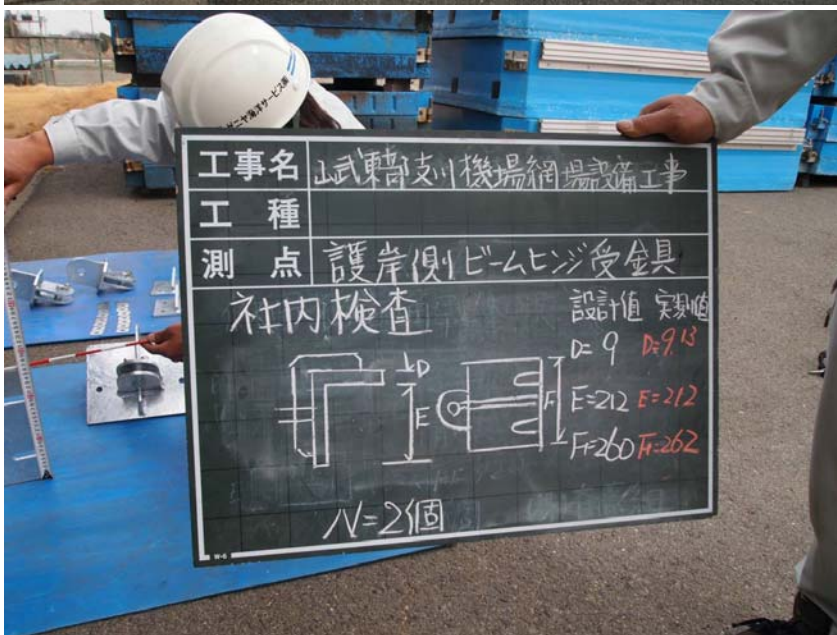 ゼニヤ海洋サービス㈱
工事名 山武東部支川機場網場設備工事
工種
測点 護岸側ビームヒンジ受金具
社内検査
設計値 実測値
D=9 D=9.13
E=212 E=212
F=260 F=262
D
E
F
N=2個
W-6